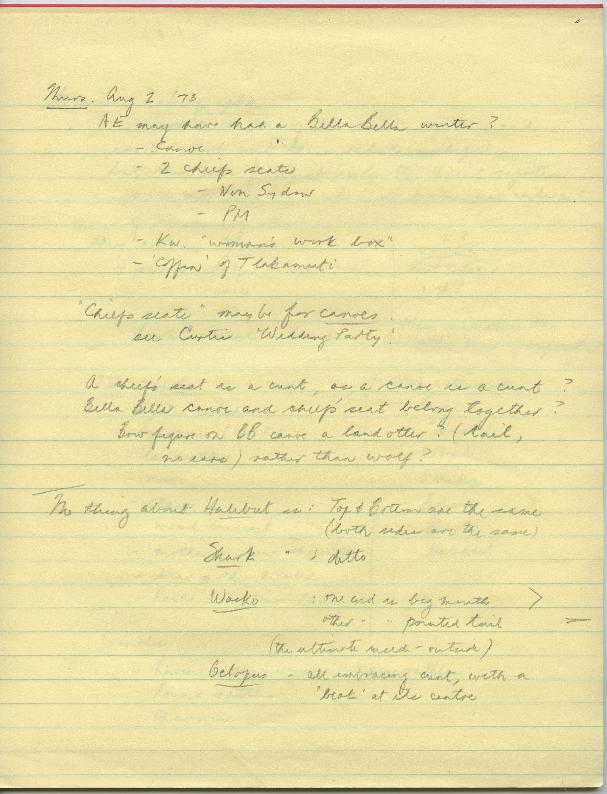 Thurs. Aug 2 '73
AE may have had a Bella Bella winter?
- Canoe
- 2 chiefs seats
- Von Sydow
- PM
- Kw. "woman's work box"
- 'Coffin' of Tlakamuti
"Chiefs seats" may be for canoes.
see Curtis 'Wedding Party'!
A chief's seat is a cunt, as a canoe is a cunt?
Bella Bella canoe and chief's seat belong together?
Bow figure on BB canoe a land otter? (tail,
no ears) rather than wolf?
The thing about Halibut is: Top & Bottom are the same
(both sides are the same)
Shark " : ditto
Wasko : one end is big mouth >
other " " pointed tail —
(the ultimate - outside)
Octopus - all embracing cunt, with a
'beak' at its centre